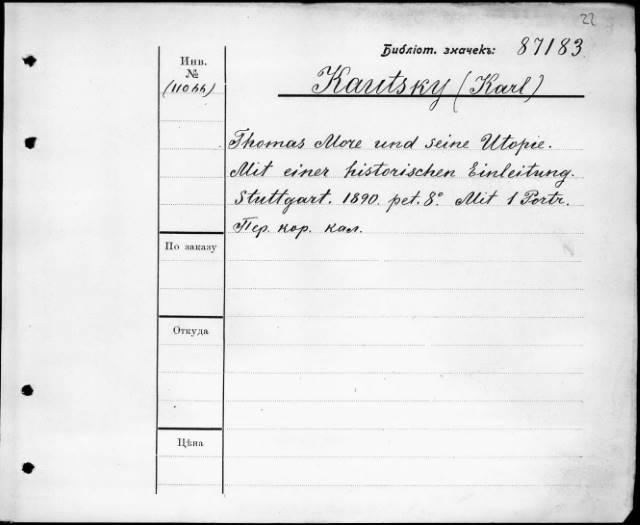 22
Библіот. значекъ: 87183
Инв.
№
Kautsky (Karl)
Thomas More und seine Utopie.
Mit einer historischen Einleitung.
Stuttgart. 1890. pet. 8°. Mit 1 Portr.
Пер. кор. кал.
По заказу
Откуда
Цѣна